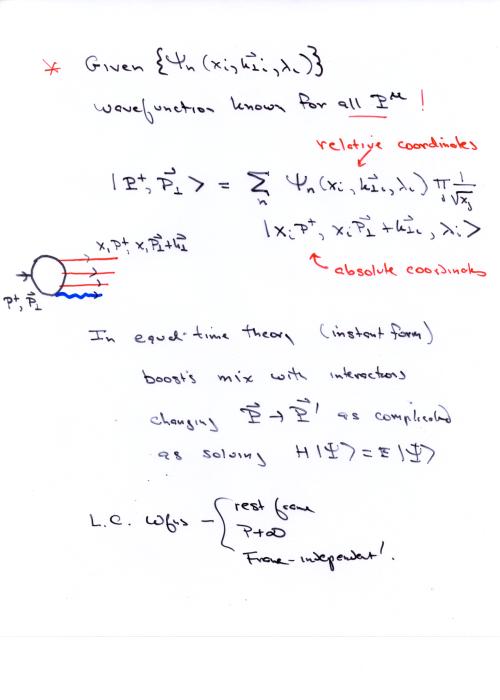 * Given {Ψn (xi, k⃗⊥i, λi)}
wavefunction known for all Pμ !
relative coordinates
|P+, P⃗⊥ > = Σn Ψn(xi, k⃗⊥i, λi) Πj 1/√xj
|xi P+, xi P⃗⊥ + k⃗⊥i, λi>
absolute coordinates
x1P+, x1P⃗⊥+k⊥
P+, P⃗⊥
In equal-time theory (instant form)
boosts mix with interactions
changing P⃗ → P⃗' as complicated
as solving H|Ψ> = E|Ψ>
L.C. wfns – { rest frame
P→∞
Frame-independent!